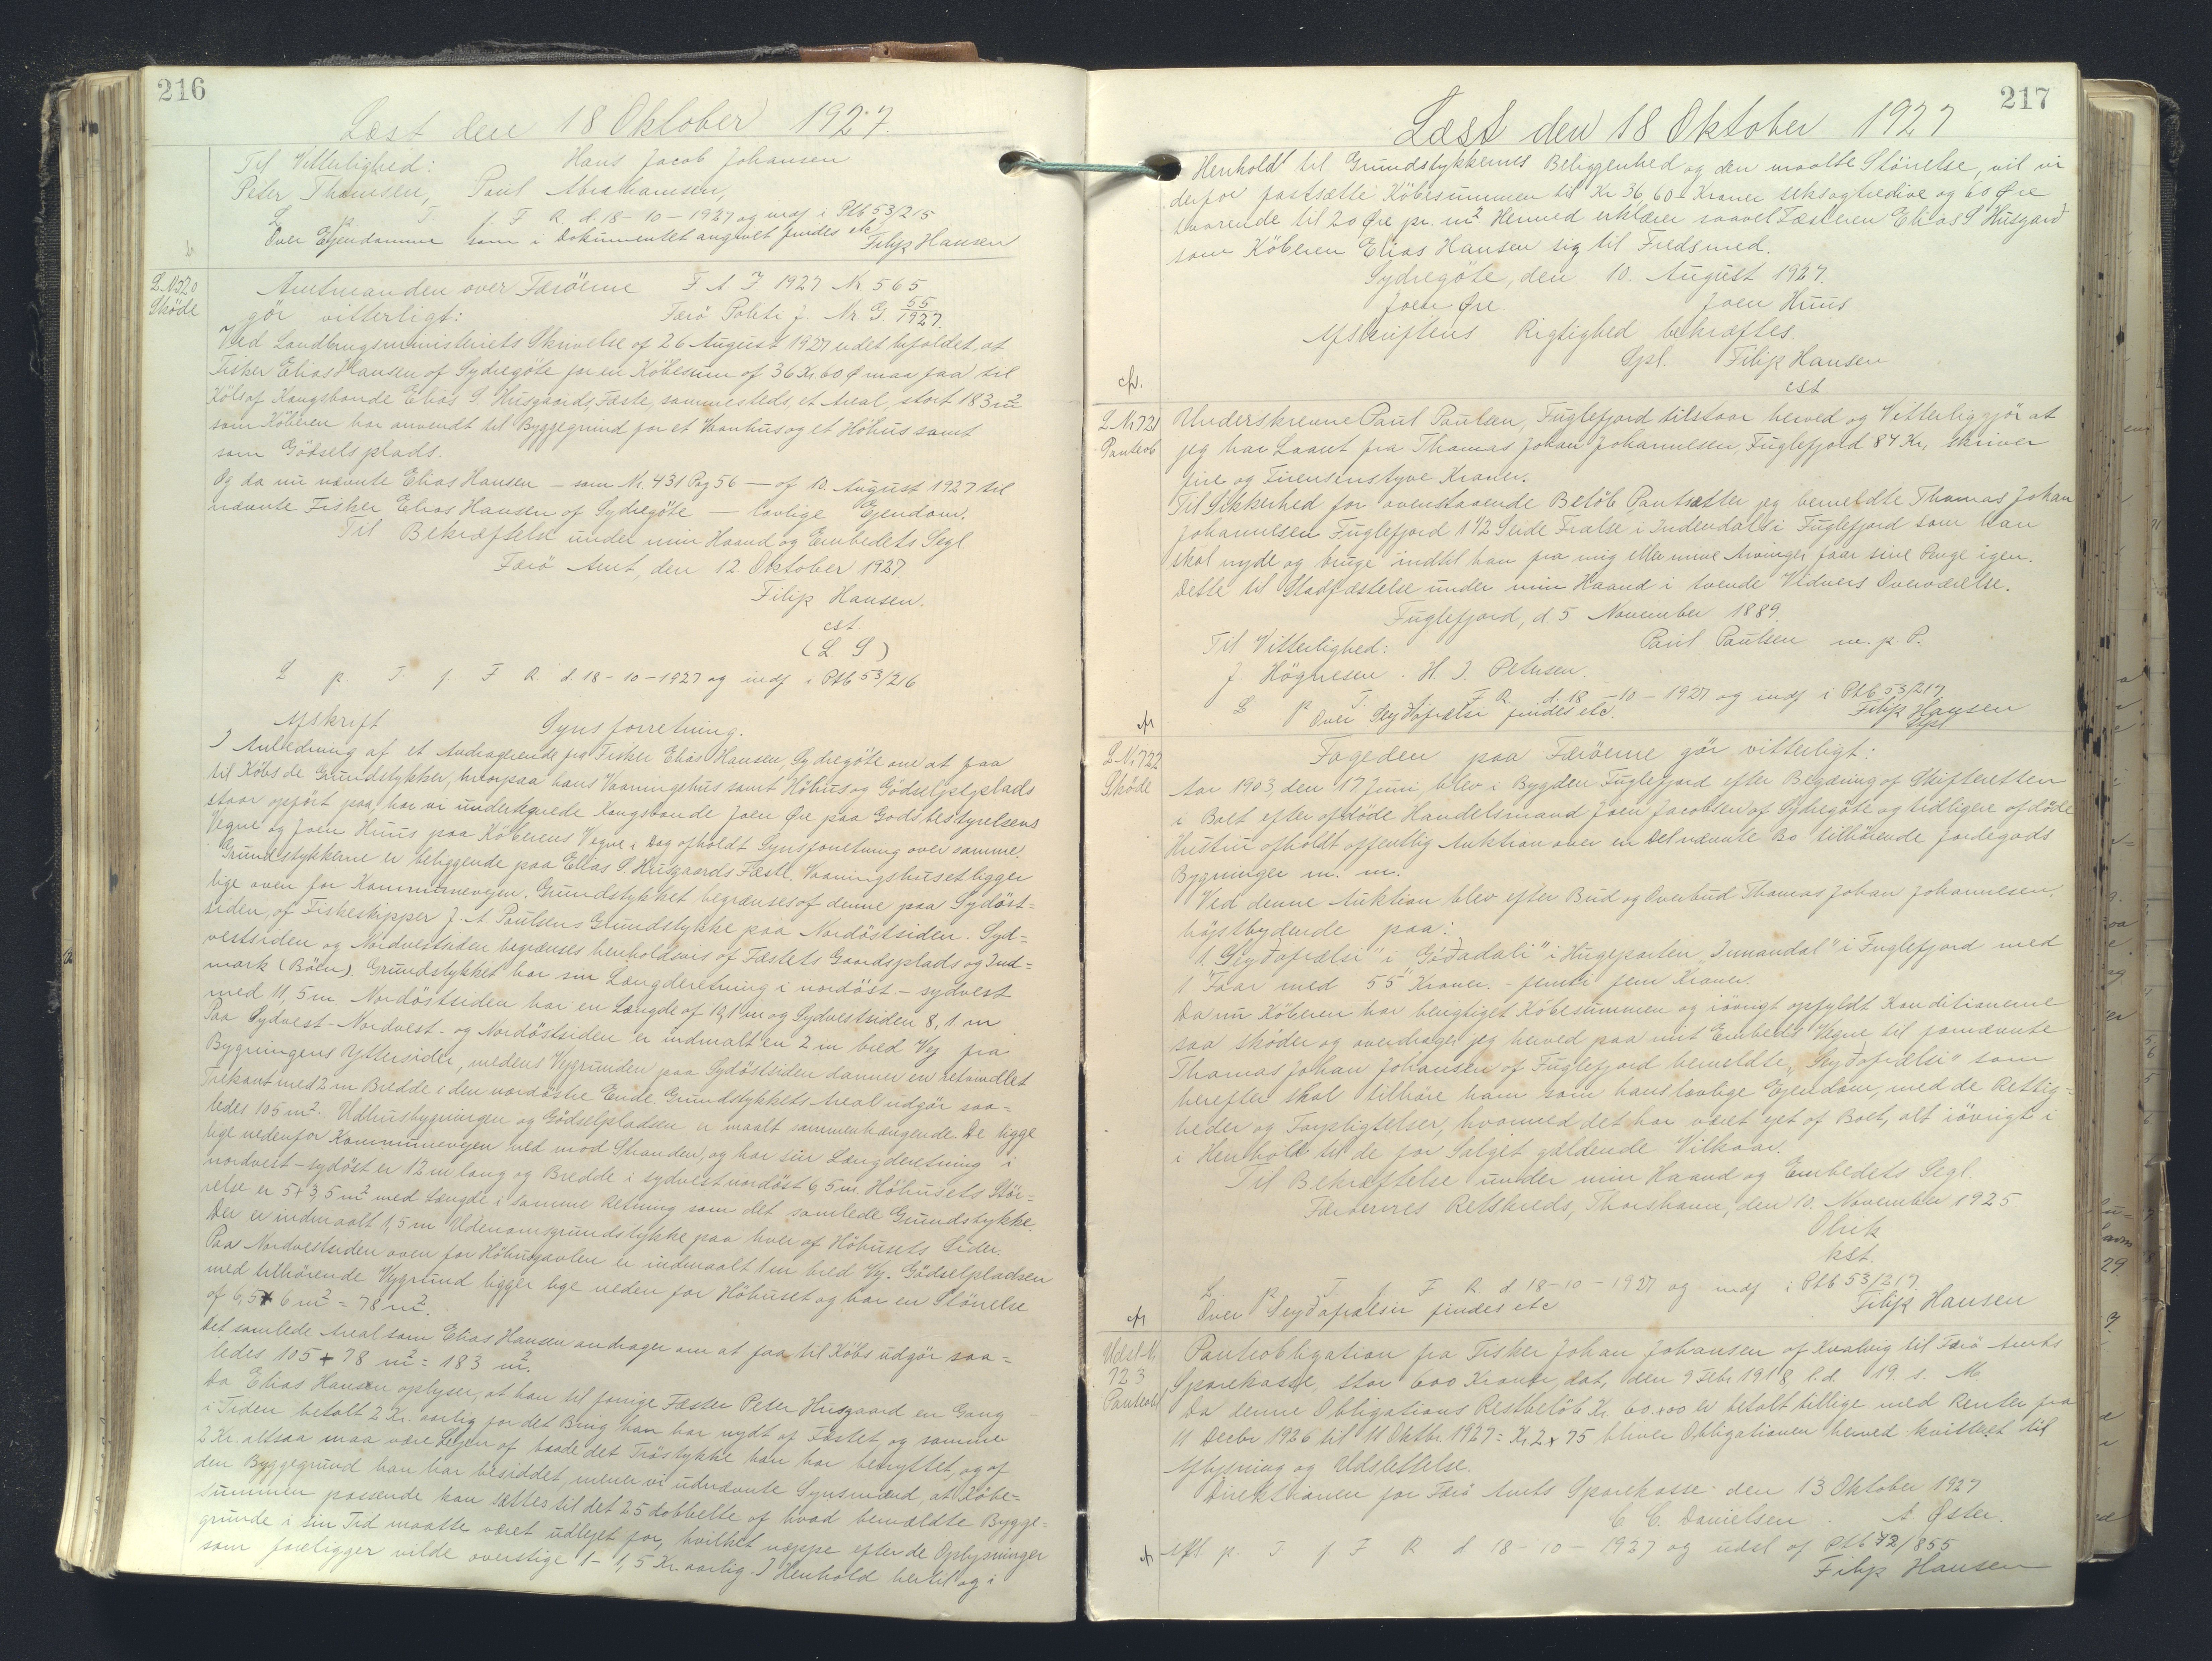 216
Læst den 18 Oktober 1927.
Til Vitterlighed: Hans Jacob Johansen
Peter Thomsen, Paul Abrahamsen,
L p. T. f. F R. d. 18-10-1927 og indf i Ptb 53/215
Over Ejendommen som i Dokumentet angivet findes etc
Filip Hansen
L. N. 720
Sköde
Amtmanden over Færöerne F A J 1927 Nr 565
gör vitterligt: Færö Politi J. Nr G. 55/1927.
Ved Landbrugsministeriets Skrivelse af 26 August 1927 er det bifaldet, at
Fisker Elias Hansen af Sydregöte for en Købesum af 36 Kr. 60 Ø maa faa til
Köbs af Kongsbonde Elias S. Husgaards Fæste, sammesteds, et Areal, stort 183 m²
som Köberen har anvendt til Byggegrund for et Vaanhus og et Höhus samt
som Gödselsplads.
Og da nu nævnte Elias Hansen – som Nr. 431 Pag 56 – af 10. August 1927 til
nævnte Fisker Elias Hansen af Sydregöte – lovlige Ejendom.
Til Bekræftelse under min Haand og Embedets Segl
Færö Amt, den 12. Oktober 1927.
Filip Hansen.
cst
(L S)
L p. T. f. F R d. 18-10-1927 og indf i Ptb 53/216
Afskrift Synsforretning.
I Anledning af et Andragende fra Fisker Elias Hansen, Sydregöte om at faa
til Köbs de Grundstykker, hvorpaa hans Vaaningshus samt Höhus og Gödselsplads
staar opfört paa, har vi undertegnede Kongsbonde Joen Øre paa Godsbestyrelsens
Vegne og Joen Huus paa Köberens Vegne i Dag afholdt Synsforretning over samme.
Grundstykkerne er beliggende paa Elias S. Husgaards Fæste. Vaaningshuset ligger
lige oven for Kommunevejen. Grundstykket begrænses af denne paa Sydöst=
siden, af Fiskeskipper J. A. Poulsens Grundstykke paa Nordöstsiden. Syd=
vestsiden og Nordvestsiden begrænses henholdsvis af Fæstets Gaardsplads og Ind=
mark (Böen). Grundstykket har sin Længderetning i nordöst – sydvest
med 11,5 m. Nordöstsiden har en Længde af 10,1 m og Sydvestsiden 8,1. m
Paa Sydvest-Nordvest- og Nordöstsiden er indmaalt en 2 m bred Vej fra
Bygningens Ydersider, medens Vejgrunden paa Sydöstsiden danner en retvinklet
Trekant med 2 m Bredde i den nordöstre Ende. Grundstykkets Areal udgör saa=
ledes 105 m². Udhusbygningen og Gödselpladsen er maalt sammenhængende. De ligge
lige nedenfor Kommunevejen ned mod Stranden, og har sin Længderetning i
nordvest – sydöst er 12 m lang og Bredde i sydvest nordöst 6,5 m. Höhusets Stör=
relse er 5 x 3,5 m² med Længde i samme Retning som det samlede Grundstykke.
Der er indmaalt 1,5 m Udenomsgrundstykke paa hver af Höhusets Sider.
Paa Nordvestsiden oven for Höhusgavlen er indmaalt 1 m bred Vej. Gödselpladsen
med tilhörende Vejgrund ligger lige neden for Höhuset og har en Störrelse
af 6,5 x 6 m² = 78 m².
Det samlede Areal som Elias Hansen andrager om at faa til Köbs udgör saa=
ledes 105 + 78 m² = 183 m².
Da Elias Hansen oplyser, at han til forrige Fæster Peter Husgaard en Gang
i Tiden betalt 2 Kr. aarlig for det Brug han har nydt af Fæstet og samme
2 Kr. altsaa maa være Lejen af baade det Tröstykke han har benyttet, og af
den Byggegrund han har besiddet, mener vi udnævnte Synsmænd, at Köbe=
summen passende kan sættes til det 25 dobbelte af hvad bemældte Bygge=
grunde i sin Tid maatte været udlejet for, hvilket næppe efter de Oplysninger
som foreligger vilde overstige 1 – 1,5 Kr. aarlig. I Henhold hertil og i
217
Læst den 18 Oktober 1927
Henhold til Grundstykkernes Beliggenhed og den maalte Störrelse, vil vi
derfor fastsætte Köbesummen til Kr 36,60 – Kroner seksogtredive og 60 Øre
svarende til 20 Øre pr. m² Hermed erklærer saavel Fæsteren Elias S Husgaard
som Köberen Elias Hansen sig til Fredsmed.
Sydregöte, den 10. August 1927.
Joen Øre. Joen Huus
Afskriftens Rigtighed bekræftes.
Gpl. Filip Hansen
cst
L. N. 721
Panteob
Underskrevne Paul Paulsen, Fuglefjord tilstaar herved og Vitterliggjör at
jeg har Laant fra Thomas Johan Johannesen, Fuglefjord 84 Kr, skriver
fire og Firensinstyve Kroner.
Til Sikkerhed for ovenstaaende Belöb Pantsætter jeg bemeldte Thomas Johan
Johannesen Fuglefjord 1 1/2 Seide Frælse i Indendal i Fuglefjord som han
skal nyde og bruge indtil han fra mig eller mine Arvinger faar sine Penge igen.
Dette til Stadfæstelse under min Haand i tvende Vidners Overværelse.
Fuglefjord, d. 5 November 1889.
Til Vitterlighed: Paul Paulsen m. p. P.
J Högnesen. H. J. Petersen.
L P T F R. d. 18-10-1927 og indf i Ptb 53/217
Over Seydafrælsi findes etc. Filip Hansen
Gpl
L. N. 722
Sköde
Fogeden paa Færöerne gör vitterligt:
Aar 1903, den 17 Juni, blev i Bygden Fuglefjord efter Begæring af Skifteretten
i Boet efter afdöde Handelsmand Joen Jacobsen af Sydregöte og tidligere afdöde
Hustru afholdt offentlig Auktion over en Del nævnte Bo tilhörende Jordegods
Bygninger m. m.
Ved denne Auktion blev efter Bud og Overbud Thomas Johan Johannesen,
höjstbydende paa:
1. Seyðafrælsi" i Góðadali" i Hugeparten „Innandal" i Fuglefjord med
1 Faar med 55 Kroner. - femti fem Kroner.
Da nu Köberen har berigtiget Köbesummen og iövrigt opfyldt Konditionerne
saa sköder og overdrager jeg herved paa mit Embeds Vegne til fornævnte
Thomas Johan Johansen af Fuglefjord bemeldte „Seyðafrælsi" som
herefter skal tilhöre ham som hans lovlige Ejendom, med de Rettig=
heder og Forpligtelser, hvormed det har været ejet af Boet, alt iövrigt i
i Henhold til de for Salget gældende Vilkaar.
Til Bekræftelse under min Haand og Embedets Segl.
Færöernes Retskreds, Thorshavn, den 10. November 1925
Olrik
kst.
L P T. f F R d. 18-10-1927 og indf i Ptb 53/217.
Over Seyðafrælsir findes etc Filip Hansen
Udsl. N.
723
Panteobl
Panteobligation fra Fisker Johan Johansen af Kvalvig til Færö Amts
Sparekasse, stor 600 Kroner, dat. den 9 Febr 1918 l. d. 19. s. M.
Da denne Obligations Restbelöb Kr. 60.00 er betalt tillige med Renter fra
11 Decbr 1926 til 11 Oktbr 1927 = Kr. 2,75 bliver Obligationen herved kvitteret til
Aflysning og Udslettelse.
Direktionen for Færö Amts Sparekasse den 13 Oktober 1927
C. C. Danielsen. A Øster.
Afl p. T f F R d. 18-10-1927 og udsl af Ptb 42/855
Filip Hansen